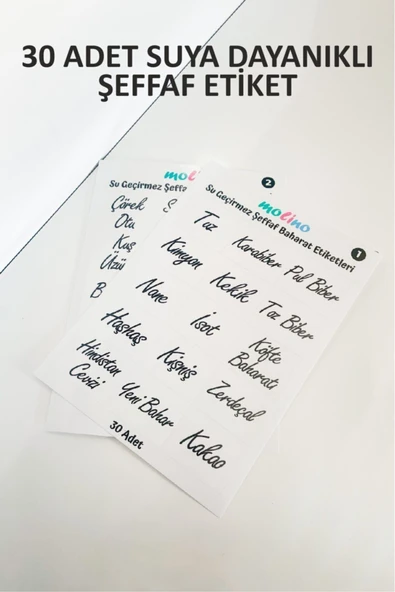 30 ADET SUYA DAYANIKLI
ŞEFFAF ETİKET
2
mol
Su Geçirmez Şeffa
Çörek
Otu
Kuş
Üzü
B
molino
Su Geçirmez Şeffaf Baharat Etiketleri
1
Tuz
Karabiber
Pul Biber
Kimyon
Kekik
Toz Biber
Nane
İsot
Köfte
Baharatı
Haşhaş
Kişniş
Zerdeçal
Hindistan
Cevizi
Yeni Bahar
Kakao
30 Adet